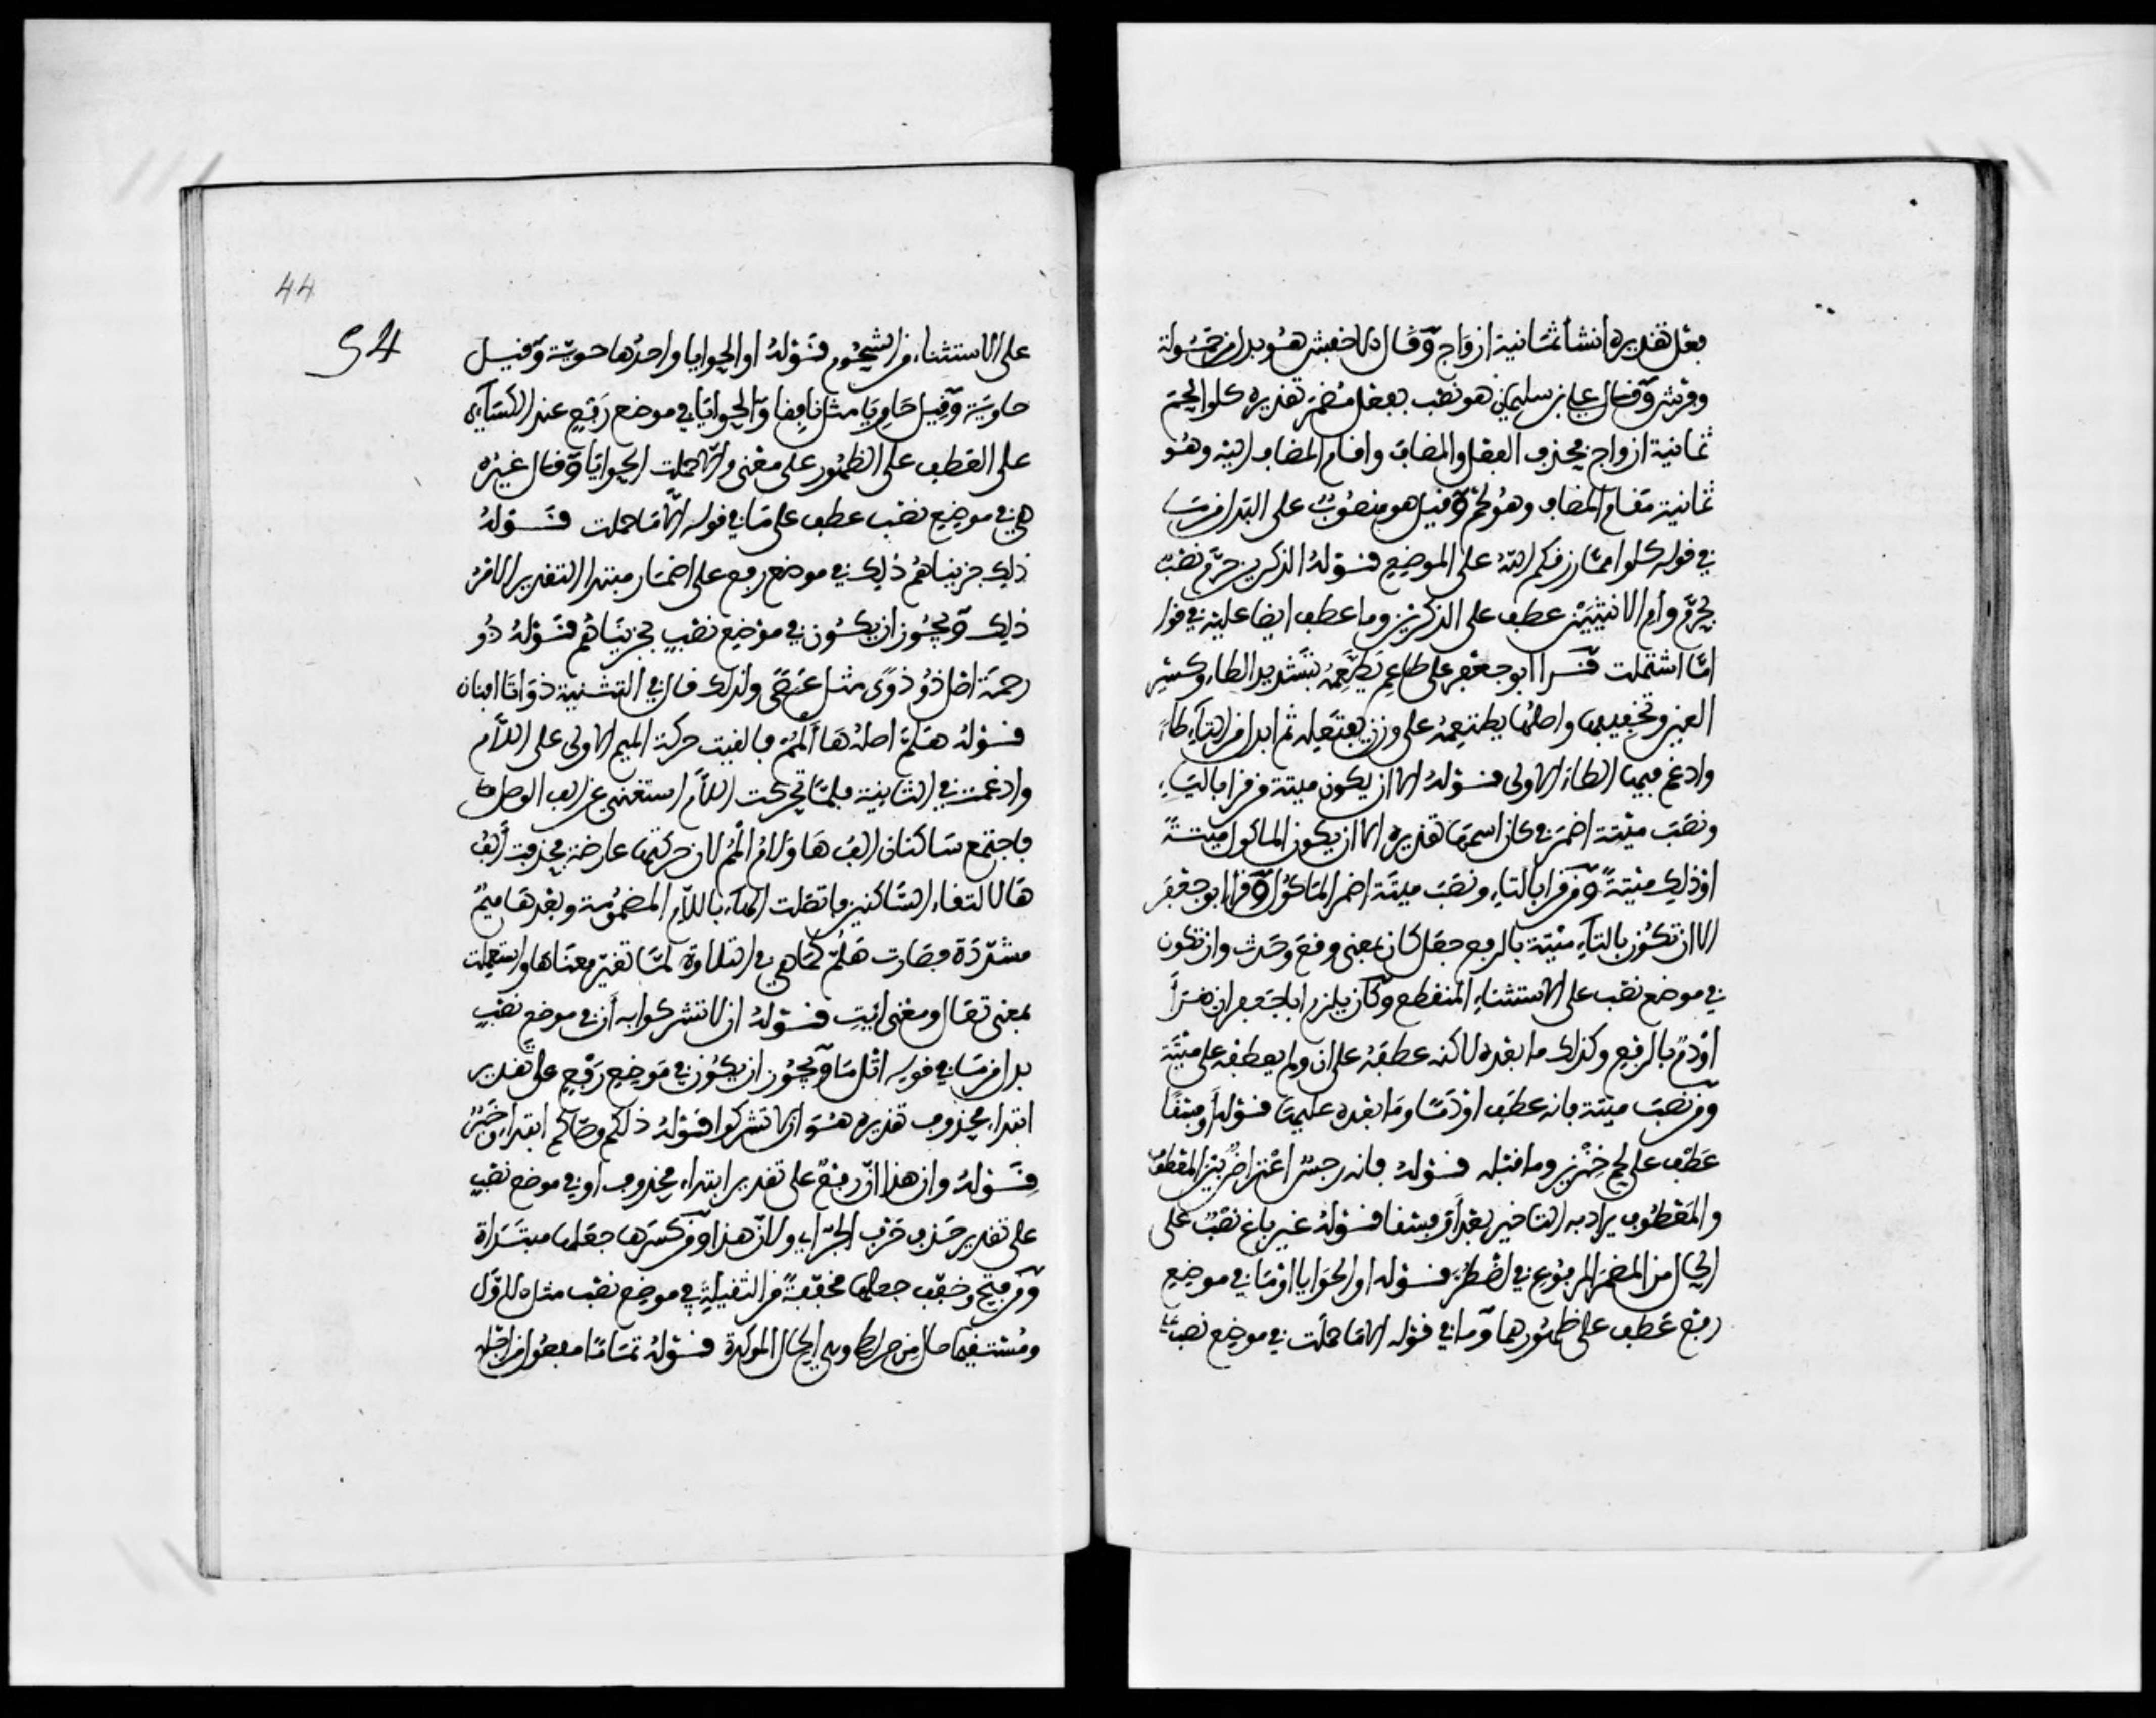 بعل تقديره انشا ثمانية ازواج وقال الاخفش هو بدل من حمولة
وفرش وقال علي بن سليمان هو نصب بفعل مضمر تقديره كلوا لحم
ثمانية ازواج فحذف الفعل والمضاف واقام المضاف اليه وهو
ثمانية مقام المضاف وهو لحم وقيل هو منصوب على البدل من ما
في قوله كلوا مما رزقكم الله على الموضع قوله الذكرين حرم نصب
بحرم وام الانثيين عطف على الذكرين وما عطف ايضا عليه في قوله
اما اشتملت قرا ابو جعفر على طاعم يطعمه بتشديد الطاء وكسر
العين وتخفيفها واصلها يطتعمه على وزن يفتعله ثم ابدل من التاء طاء
وادغم فيها الطاء الاولى قوله الا ان يكون ميتة من قرا بالياء
ونصب ميتة اضمر في كان اسمها تقديره الا ان يكون الماكول ميتة
او ذلك ميتة ومن قرا بالتاء ونصب ميتة اضمر الماكول وقرا ابو جعفر
الا ان تكون بالتاء ميتة بالرفع جعل كان بمعنى وقع وحدث وان تكون
في موضع نصب على الاستثناء المنقطع وكان يلزم ابا جعفر ان يقرا
او دم بالرفع وكذلك ما بعده لاكنه عطفه على ان ولم يعطفه على ميتة
ومن نصب ميتة فانه عطف او دما وما بعده عليها قوله او فسقا
عطف على لحم خنزير وما قبله قوله فانه رجس اعتراض بين المعطوف
والمعطوف يراد به التاخير بعد او فسقا قوله غير باغ نصب على
الحال من المضمر المرفوع في اضطر قوله او الحوايا او ما في موضع
رفع عطف على ظهورهما وما في قوله الا ما حملت في موضع نصب
44
94
على الاستثناء من الشحوم قوله او الحوايا واحدها حوية وقيل
حاوية وقيل حاويا مثل نافقا والحوايا في موضع رفع عند الكساءي
على العطف على الظهور على معنى والا ما حملت الحوايا وقال غيره
هي في موضع نصب عطف على ما في قوله الا ما حملت قوله
ذلك جزيناهم ذلك في موضع رفع على اضمار مبتدا التقدير الامر
ذلك ويجوز ان يكون في موضع نصب بجزيناهم قوله ذو
رحمة اصل ذو ذوى مثل عصى ولذلك قال في التثنية ذواتا افنان
قوله هلم اصله ها المم فالقيت حركة الميم الاولى على اللام
وادغمت في الثانية فلما تحركت اللام استغني عن الف الوصل
فاجتمع ساكنان الف ها ولام المم لان حركتها عارضة فحذفت الف
ها لالتقاء الساكنين فاتصلت الهاء باللام المضمومة وبعدها ميم
مشددة فصارت هلم كما هي في التلاوة لما تغير معناها واستعملت
بمعنى تعال ومعنى ايت قوله ان لا تشركوا به ان في موضع نصب
بدل من ما في قوله اتل ما ويجوز ان يكون في موضع رفع على تقدير
ابتداء محذوف تقديره هو الا تشركوا قوله ذلكم وصاكم ابتداء وخبر
قوله وان هذا ان رفع على تقدير ابتداء محذوف او في موضع نصب
على تقدير حذف حرف الجر اي ولان هذا ومن كسرها جعلها مبتداة
ومن فتح وخفف جعلها مخففة من الثقيلة في موضع نصب مثل الاول
ومستقيما حال من صراطي وهي الحال الموكدة قوله تماما مفعول من اجله